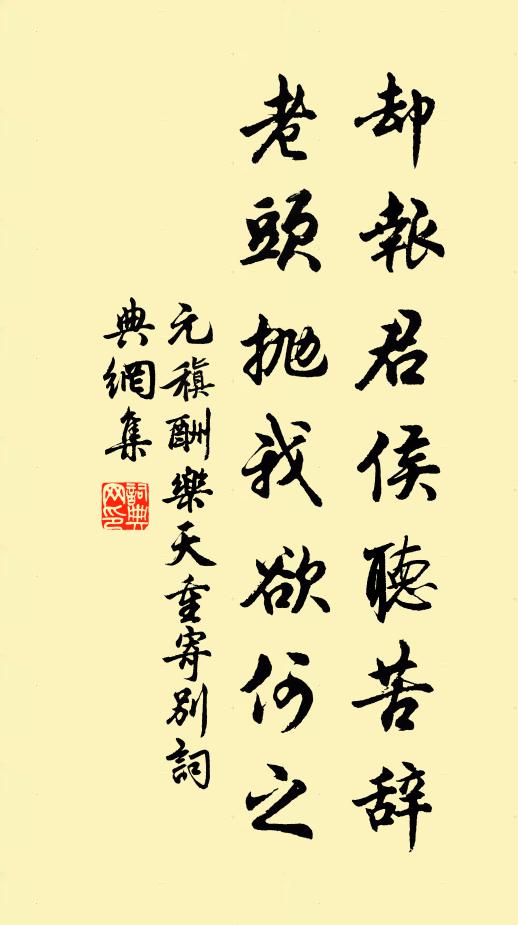 却報君侯聽苦辞
老頭抛我欲何之
元稹酬樂天重寄别詞
典網集
詞典网印